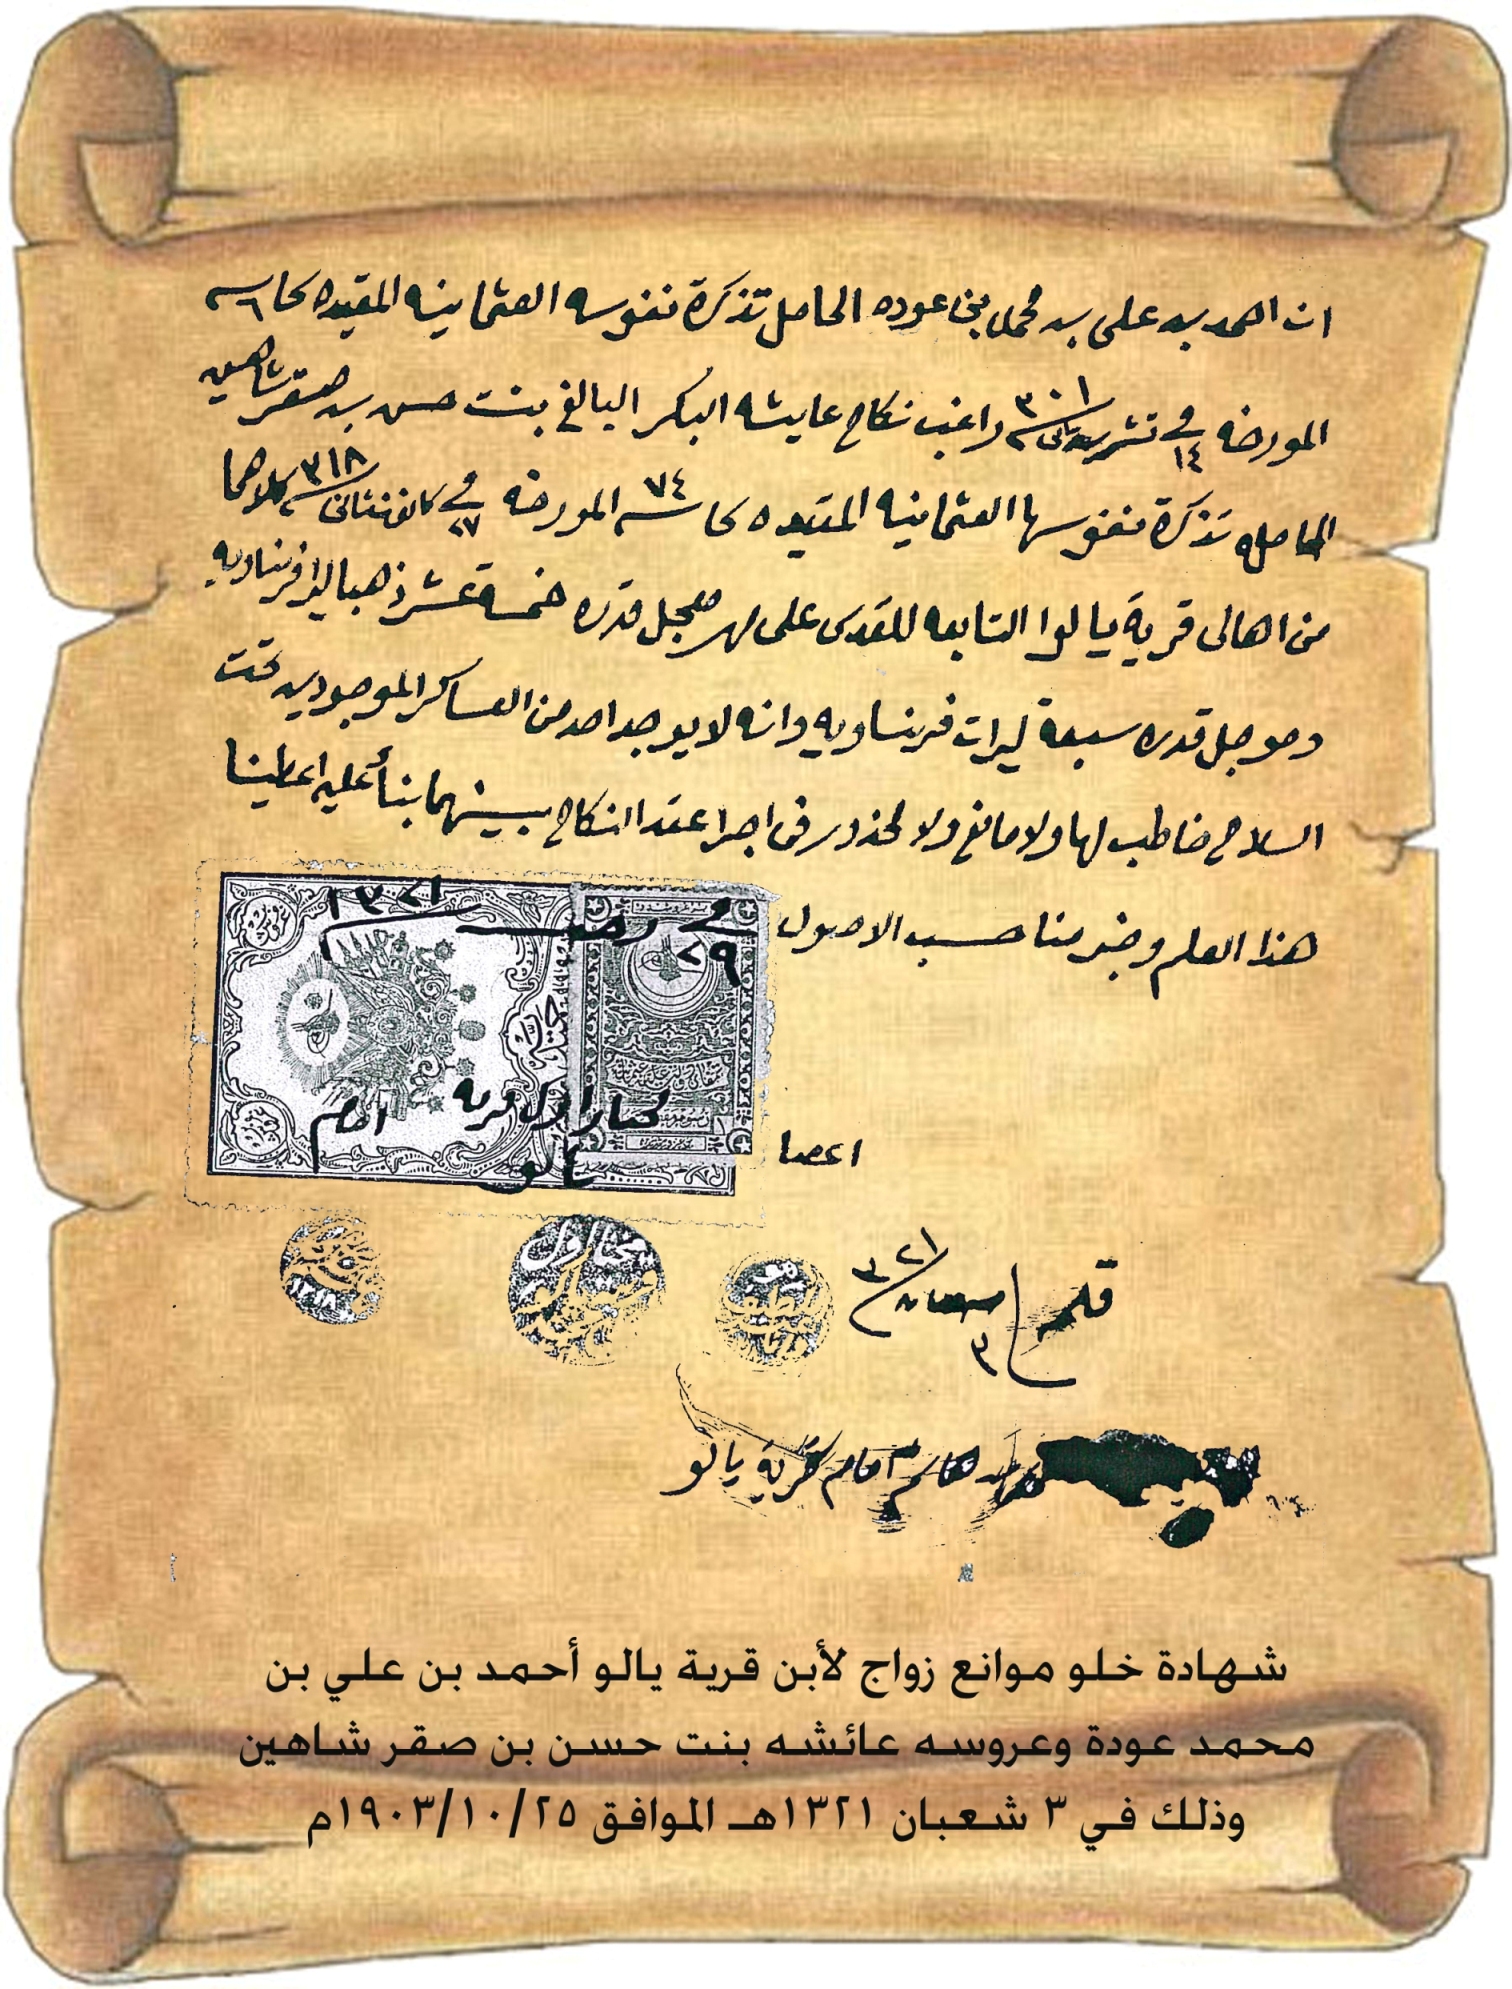 ان احمد بن علي بن محمد بني عوده الحامل تذكرة نفوسه العثمانيه المقيده
المورخه في ١٤ تشرين ثاني سنة ٣٠١ راغب نكاح عايشه البكر البالغ بنت حسن بن صقر شاهين
الحامله تذكرة نفوسها العثمانيه المقيده ٧٤ المورخه في ٢٧ كانون ثاني سنة ٣١٨ كلاهما
من اهالي قرية يالوا التابعه للقدس على مهر معجل قدره خمسة عشر ذهبا ليرا فرنساويه
وموجل قدره سبعة ليرات فرنساويه وانه لا يوجد احد من العساكر الموجودين تحت
السلاح خاطب لها ولا مانع ولا محذور في اجرا عقد النكاح بينهما بنأ عليه اعطينا
هذا العلم وخبر منا حسب الاصول
في ٢٩ رجب ١٣٢١
اعضا
مختار اول قرية يالو
امام
مختار اول
١٣١٨
٣ شعبان ٣٢١
امام قرية يالو
شهادة خلو موانع زواج لأبن قرية يالو أحمد بن علي بن
محمد عودة وعروسه عائشه بنت حسن بن صقر شاهين
وذلك في ٣ شعبان ١٣٢١هـ الموافق ١٩٠٣/١٠/٢٥م